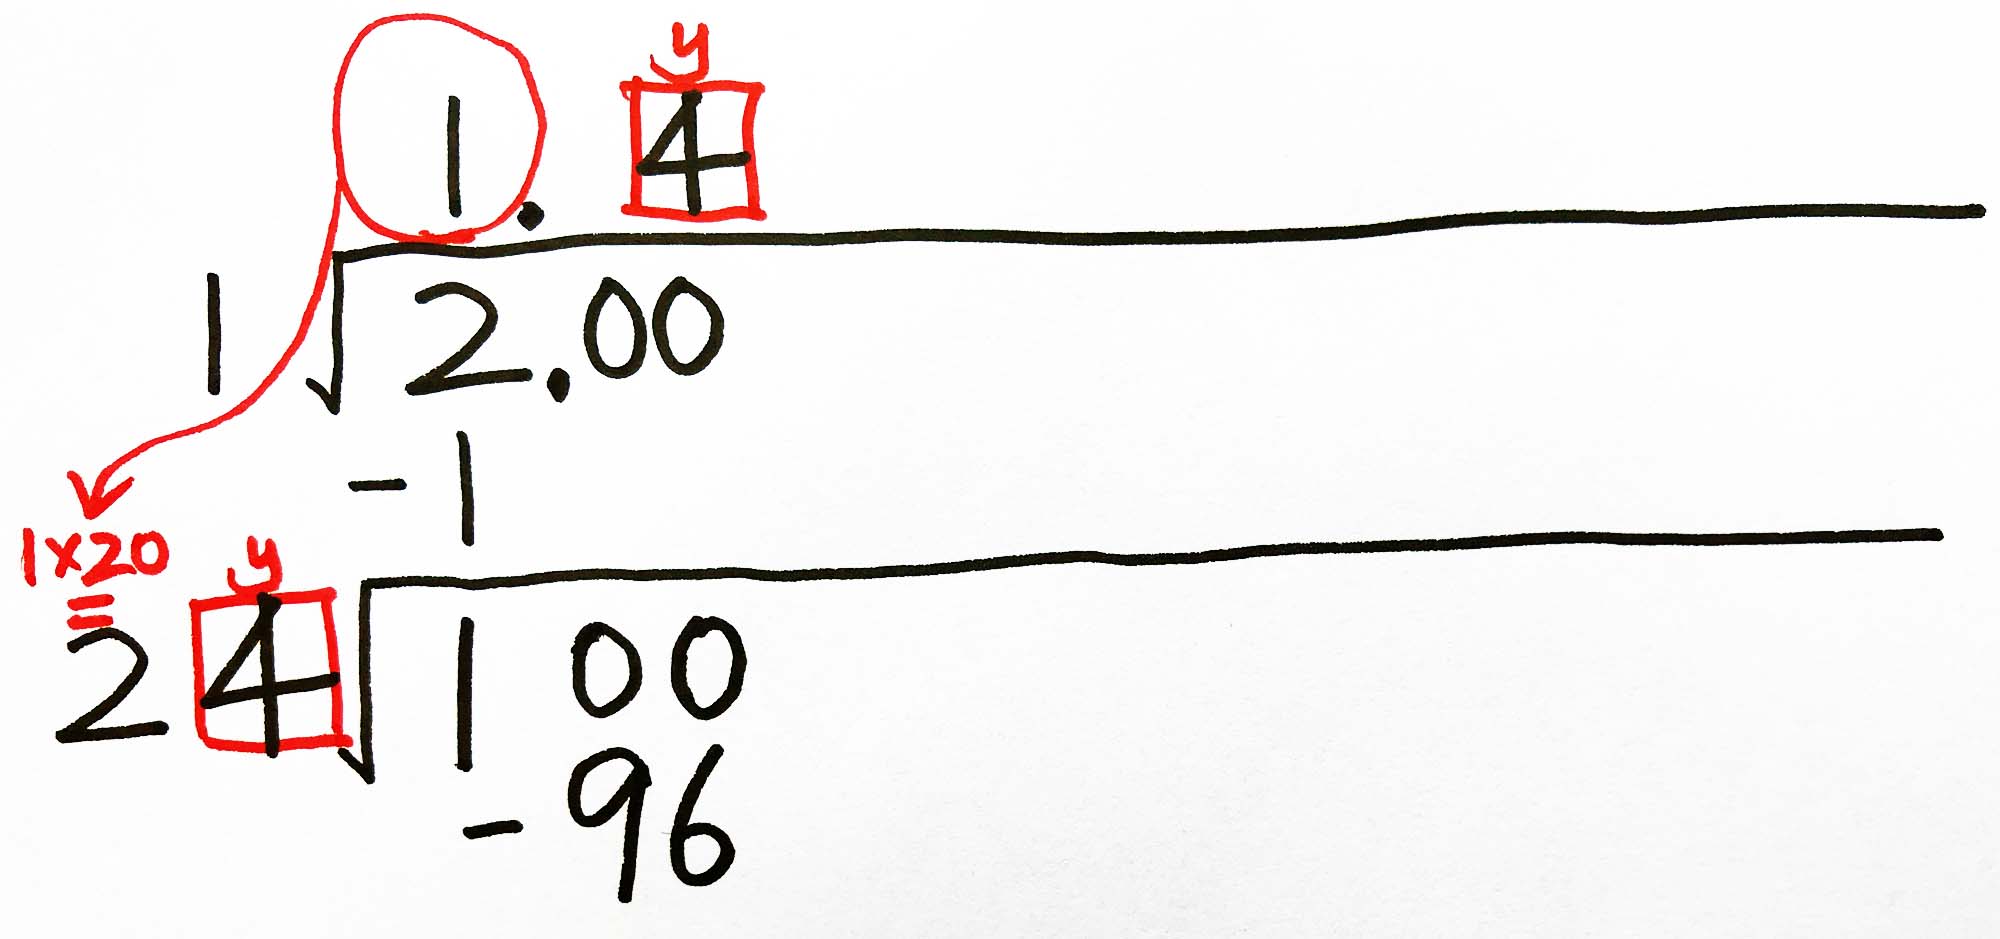 y
1.4
1√2.00
-1
1×20
=
y
24√100
-96